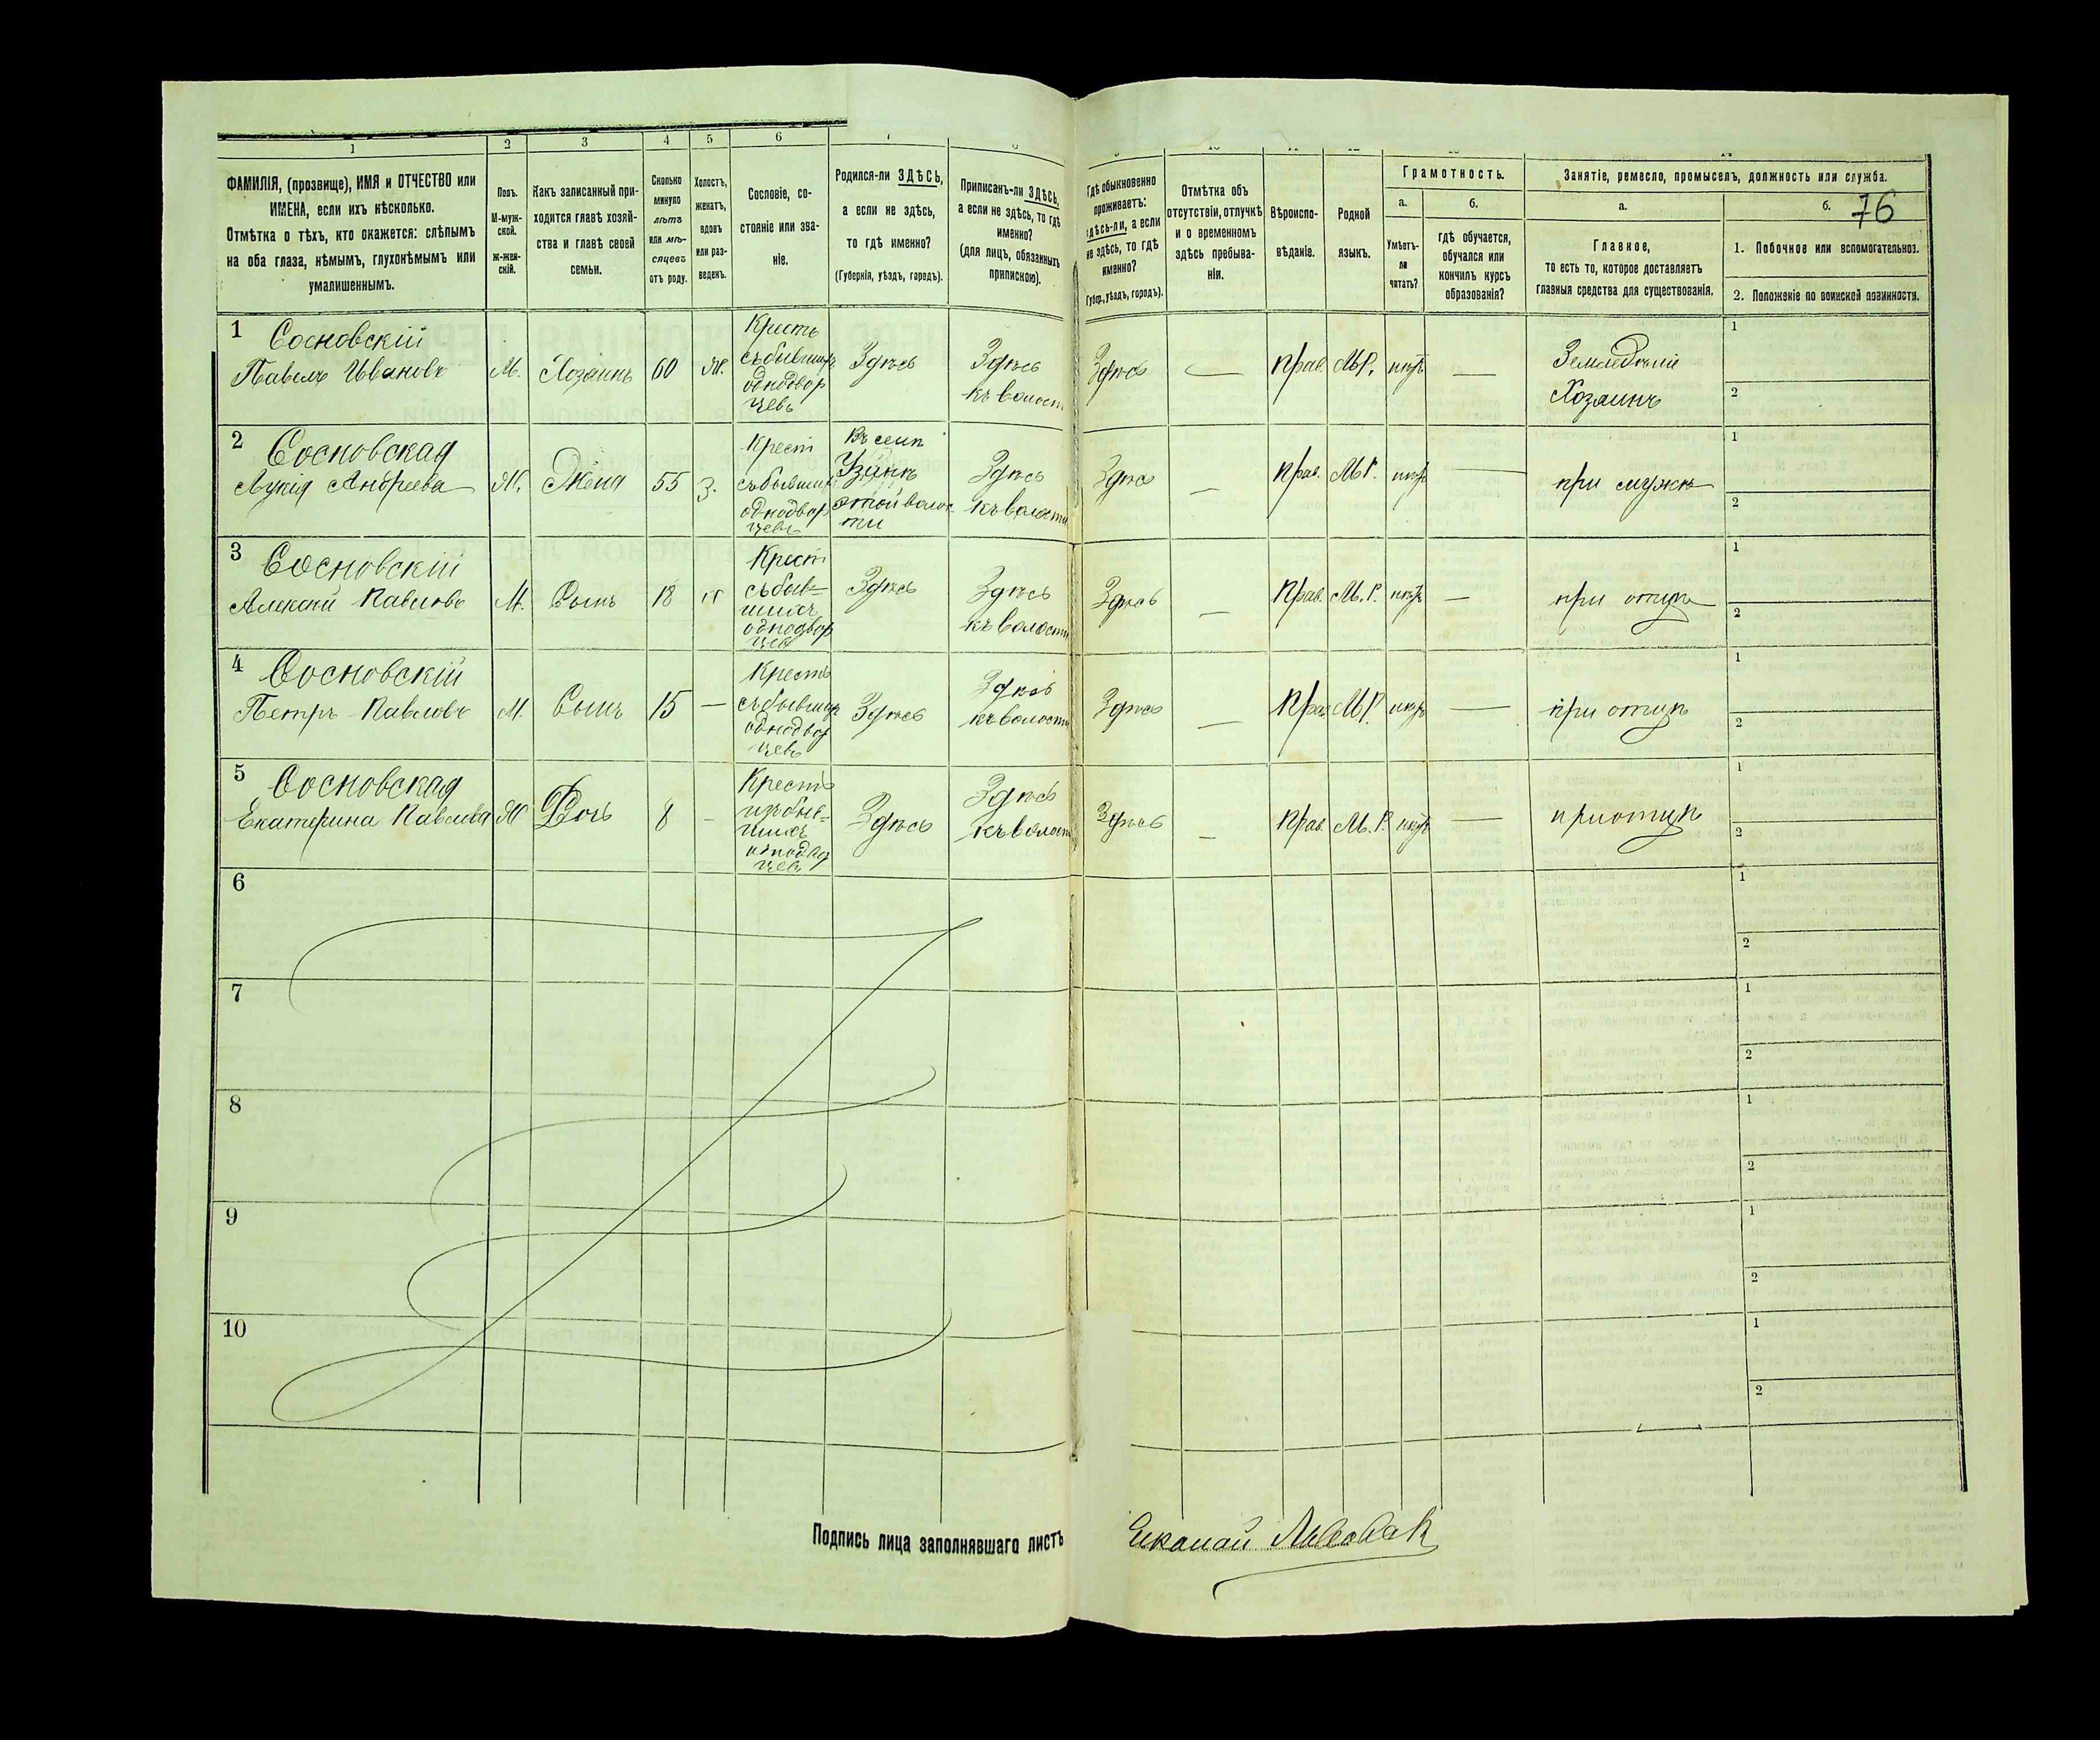 1 2 3 4 5 6
ФАМИЛІЯ, (прозвище), ИМЯ и ОТЧЕСТВО или
ИМЕНА, если ихъ нѣсколько.
Отмѣтка о тѣхъ, кто окажется: слѣпымъ
на оба глаза, нѣмымъ, глухонѣмымъ или
умалишеннымъ.
Полъ.
М-муж-
ской.
ж-жен-
скій.
Какъ записанный при-
ходится главѣ хозяй-
ства и главѣ своей
семьи.
Сколько
минуло
лѣтъ
или мѣ-
сяцевъ
отъ роду.
Холостъ,
женатъ,
вдовъ
или раз-
веденъ.
Сословіе, со-
стояніе или зва-
ніе.
Родился-ли ЗДѢСЬ,
а если не здѣсь,
то гдѣ именно?
(Губернія, уѣздъ, городъ).
Приписанъ-ли ЗДѢСЬ,
а если не здѣсь, то гдѣ
именно?
(для лицъ, обязанныхъ
припискою).
Гдѣ обыкновенно
проживаетъ:
здѣсь-ли, а если
не здѣсь, то гдѣ
именно?
(Губер., уѣздъ, городъ).
Отмѣтка объ
отсутствіи, отлучкѣ
и о временномъ
здѣсь пребыва-
ніи.
Вѣроиспо-
вѣданіе.
Родной
языкъ.
Грамотность.
а.
Умѣетъ-
ли
читать?
б.
гдѣ обучается,
обучался или
кончилъ курсъ
образованія?
Занятіе, ремесло, промыселъ, должность или служба.
а.
Главное,
то есть то, которое доставляетъ
главныя средства для существованія.
б.
76
1. Побочное или вспомогательноз.
2. Положеніе по воинской повинности.
1 Сосновскій
Павелъ Ивановъ
М. Хозяинъ 60 Ж.
Крестъ
съ бывших
однодвор
цевъ
Здѣсь
Здѣсь
къ волости
Здѣсь — Прав. М.Р. нѣтъ —
Земледѣлій
Хозяинъ
1
2
2 Сосновская
Лукія Андреева
Ж. Жена 55 З.
Крест
съ бывших
однодвор
цевъ
Въ селѣ
этой волос
ти
Здѣсь
къ волости
Здѣсь — Прав. М.Р. нѣтъ —
при мужѣ
1
2
3 Сосновскій
Алексѣй Павловъ
М. Сынъ 18
Крест
съ быв=
шихъ
однодвор
цевъ
Здѣсь
Здѣсь
къ волости
Здѣсь — Прав. М.Р. нѣтъ —
при отцѣ
1
2
4 Сосновскій
Петръ Павловъ
М. Сынъ 15 —
Крестъ
съ бывших
однодвор
цевъ
Здѣсь
Здѣсь
къ волости
Здѣсь — Прав. М.Р. нѣтъ —
при отцѣ
1
2
5 Сосновская
Екатерина Павлова
Ж Дочь 8 —
Крестъ
изъ быв=
шихъ
однодвор
цевъ
Здѣсь
Здѣсь
къ волости
Здѣсь — Прав. М.Р. нѣтъ —
при отцѣ
1
2
6
1
2
7
1
2
8
1
2
9
1
2
10
1
2
Подпись лица заполнявшаго листъ